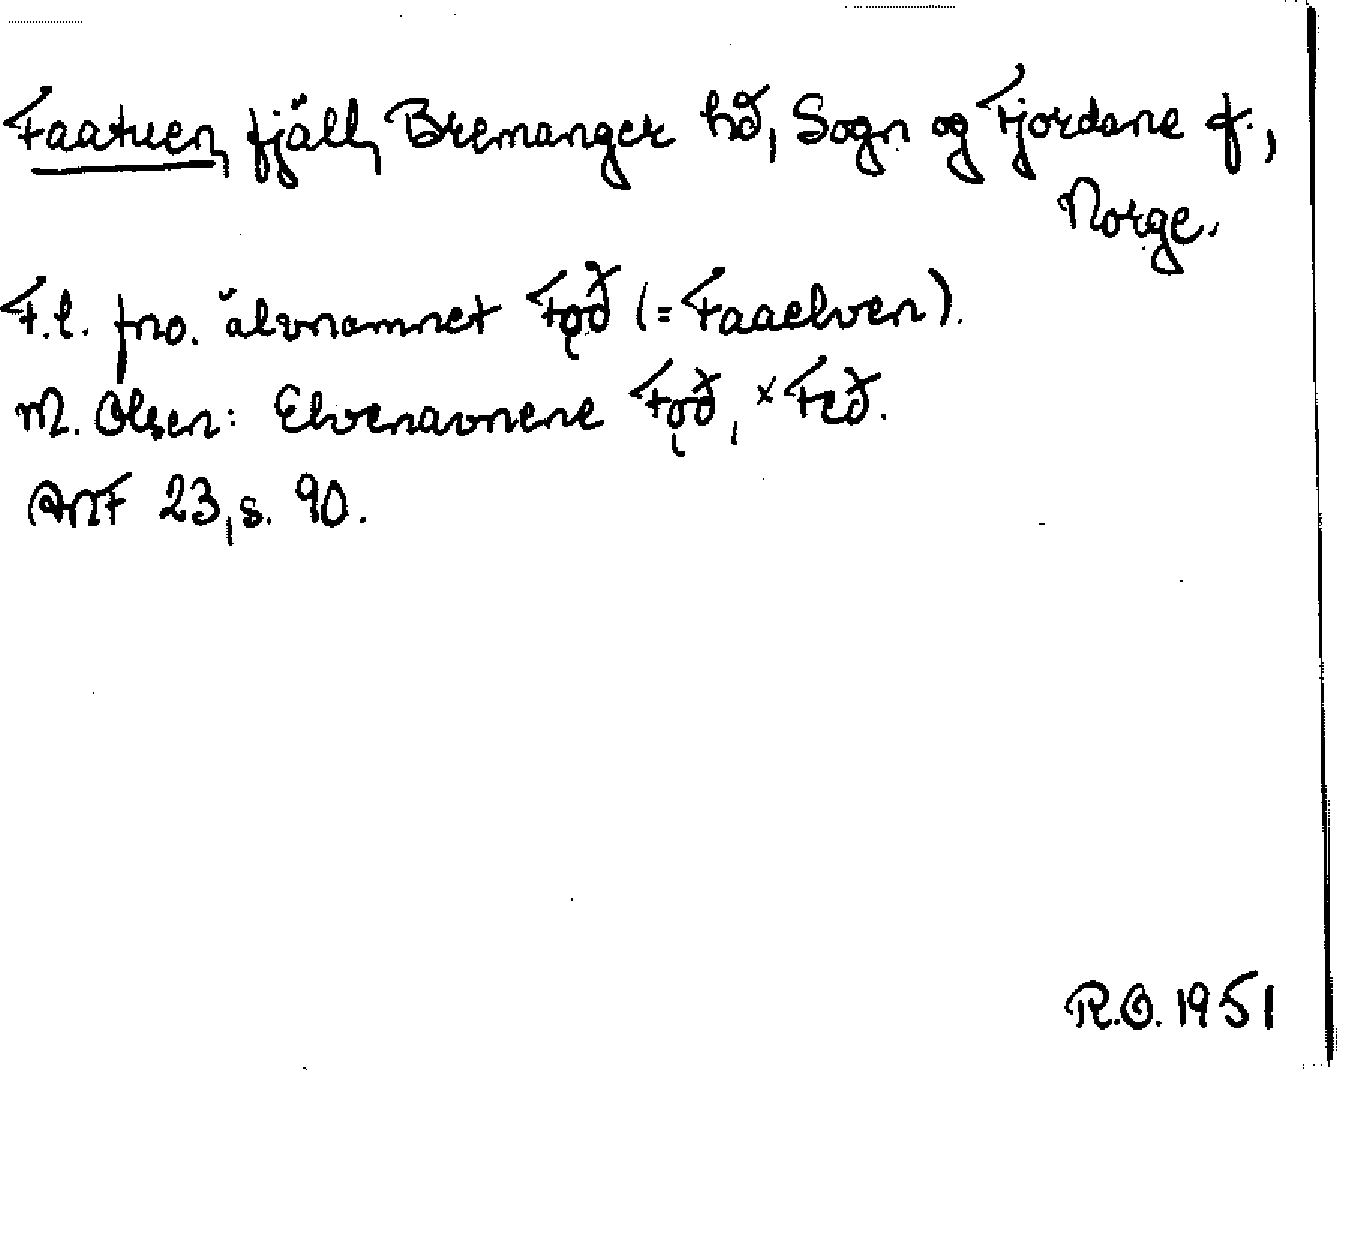 Faatuen, fjäll, Bremanger hd, Sogn og Fjordane f.,
Norge.
F.l. fno. älvnamnet Fǫð (= Faaelven).
M. Olsen: Elvenavnene Fǫð, ×Feð.
ANF 23, s. 90.
R.O. 1951